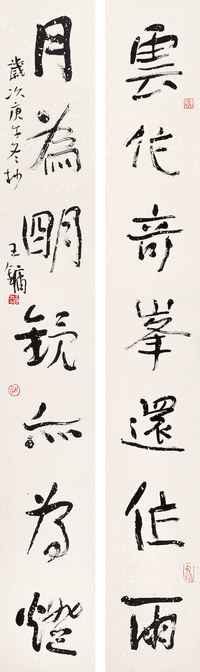 雲作奇峯還作雨
月為明鏡亦為燈
歲次庚午冬抄
王鏞